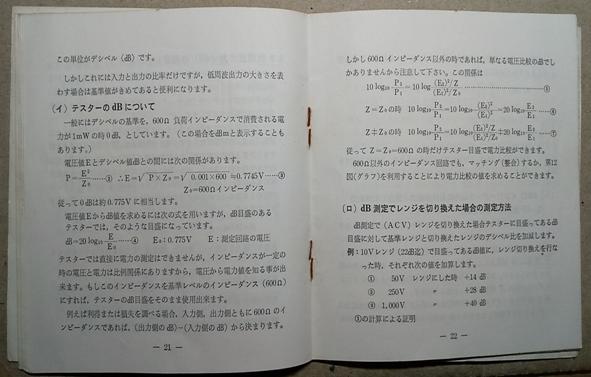 この単位がデシベル(dB)です。
しかしこれには入力と出力の比率だけですが、低周波出力の大きさを表
わす場合は基準値がきめてあると便利になります。
(イ) テスターの dB について
一般にはデシベルの基準を、600Ω 負荷インピーダンスで消費される電
力が1mWの時0dB、としています。(この場合をdBmと表示することも
あります。)
電圧値Eとデシベル値dBとの間には次の関係があります。
P=E²/Z₀……③ ∴E=√P×Z₀=√0.001×600≒0.7745V……③
Z₀=600Ωインピーダンス
従って0dBは約0.775Vに相当します。
電圧値Eから dB値を求めるには次の式を用いますが、dB目盛のある
テスターでは、そのような目盛になっています。
dB=20 log₁₀ E/E₀……④ E₀:0.775V E:測定回路の電圧
テスターでは直接に電力の測定はできませんが、インピーダンスが一定の
時の電圧と電力は比例関係にありますから、電圧から電力値を知る事が出
来ます。もしこのインピーダンスを基準レベルのインピーダンス(600Ω)
にすれば、テスターのdB目盛をそのまま使用出来ます。
例えば利得または損失を調べる場合、入力側、出力側ともに600Ωのイ
ンピーダンスであれば、(出力側のdB)−(入力側の dB) から決まります。
— 21 —
しかし600Ωインピーダンス以外の時であれば、単なる電圧比較のdBでし
かありませんから注意して下さい。この関係は
10 log₁₀ P₂/P₁=10 log (E₂)²/Z/(E₁)²/Z₀……⑤
Z=Z₀の時 10 log₁₀ P₂/P₁=10 log₁₀ (E₂)²/(E₁)²=20 log₁₀ E₂/E₁……⑥
Z≠Z₀の時 10 log₁₀ P₂/P₁=10 log₁₀ (E₂)²/Z/(E₁)²/Z₀≠20 log₁₀ E₂/E₁……⑦
従って Z=Z₀=600Ω の時だけテスター目盛で電力比較ができます。
600Ω以外のインピーダンス回路でも、マッチング(整合)するか、第12
図(グラフ)を利用することにより電力比較の値を求めることができます。
(ロ) dB 測定でレンジを切り換えた場合の測定方法
dB測定で(ACV)レンジを切り換えた場合テスターに目盛ってあるdB
目盛に対して基準レンジと切り換えたレンジのデシベル比を加減します。
例:10Vレンジ(22dB迄)で目盛ってあるdB値に、レンジ切り換えを行な
った時、それぞれ次の値を加算します。
① 50V レンジにした時 +14 dB
② 250V 〃 +28 dB
1,000V 〃 +40 dB
①の計算による証明
— 22 —